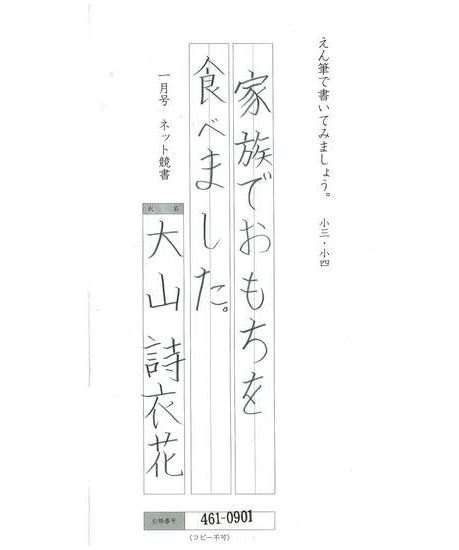 えん筆で書いてみましょう。 小三・小四
家族でおもちを
食べました。
一月号 ネット競書
氏名
大山詩衣花
461-0901
(コピー不可)